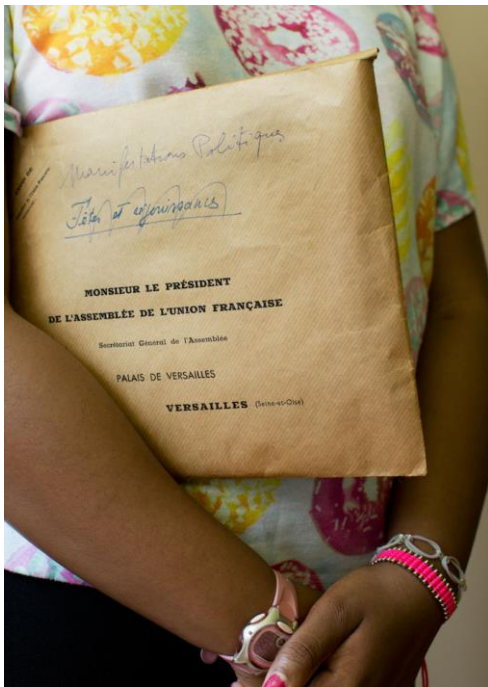 Manifestations Politiques
Fêtes et réjouissances
MONSIEUR LE PRÉSIDENT
DE L'ASSEMBLÉE DE L'UNION FRANÇAISE
Secrétariat Général de l'Assemblée
PALAIS DE VERSAILLES
VERSAILLES (Seine-et-Oise)